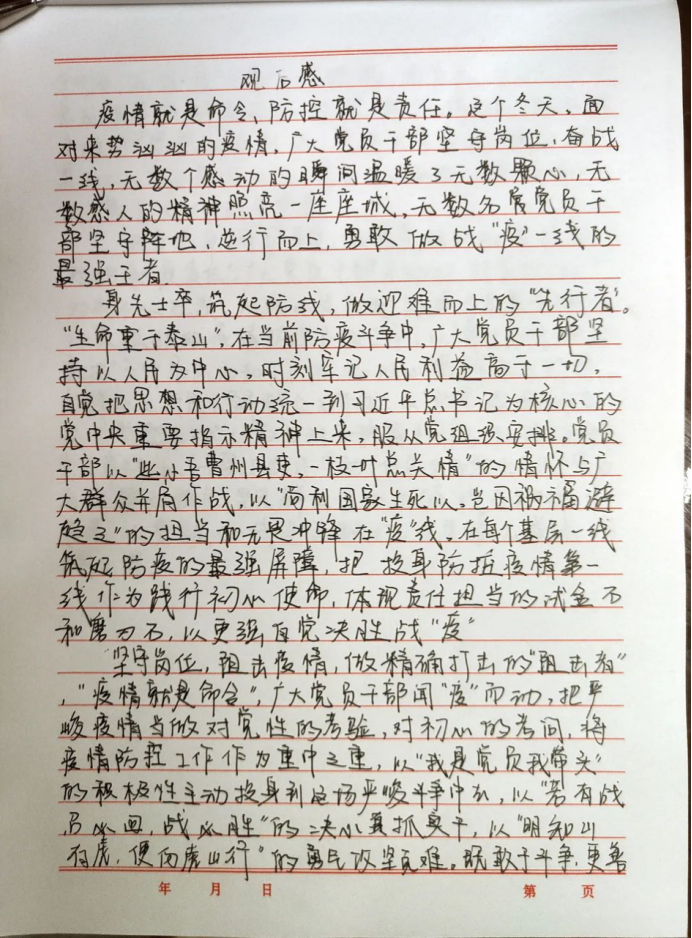 观后感
疫情就是命令，防控就是责任。这个冬天，面
对来势汹汹的疫情，广大党员干部坚守岗位，奋战
一线，无数个感动的瞬间温暖了无数颗心，无
数感人的精神照亮一座座城，无数名党员干
部坚守阵地，逆行而上，勇敢做战“疫”一线的
最强王者.
身先士卒，筑起防线，做迎难而上的“先行者”。
“生命重于泰山”，在当前防疫斗争中，广大党员干部坚
持以人民为中心，时刻牢记人民利益高于一切，
自觉把思想和行动统一到习近平总书记为核心的
党中央重要指示精神上来，服从党组织安排。党员
干部以“些小吾曹州县吏，一枝一叶总关情”的情怀与广
大群众并肩作战，以“苟利国家生死以，岂因祸福避
趋之”的担当和无畏冲锋在“疫”线，在每个基层一线
筑起防疫的最强屏障，把投身防控疫情第一
线作为践行初心使命，体现责任担当的试金石
和磨刀石，以更强自觉决胜战“疫”
坚守岗位，阻击疫情，做精确打击的“阻击者”
，“疫情就是命令”，广大党员干部闻“疫”而动，把严
峻疫情当做对党性的考验，对初心的考问，将
疫情防控工作作为重中之重，以“我是党员我带头”
的积极性主动投身到这场严峻斗争中去，以“若有战
召必回，战必胜”的决心真抓实干，以“明知山
有虎，便向虎山行”的勇气攻坚克难。既敢于斗争，更善
年 月 日
第 页